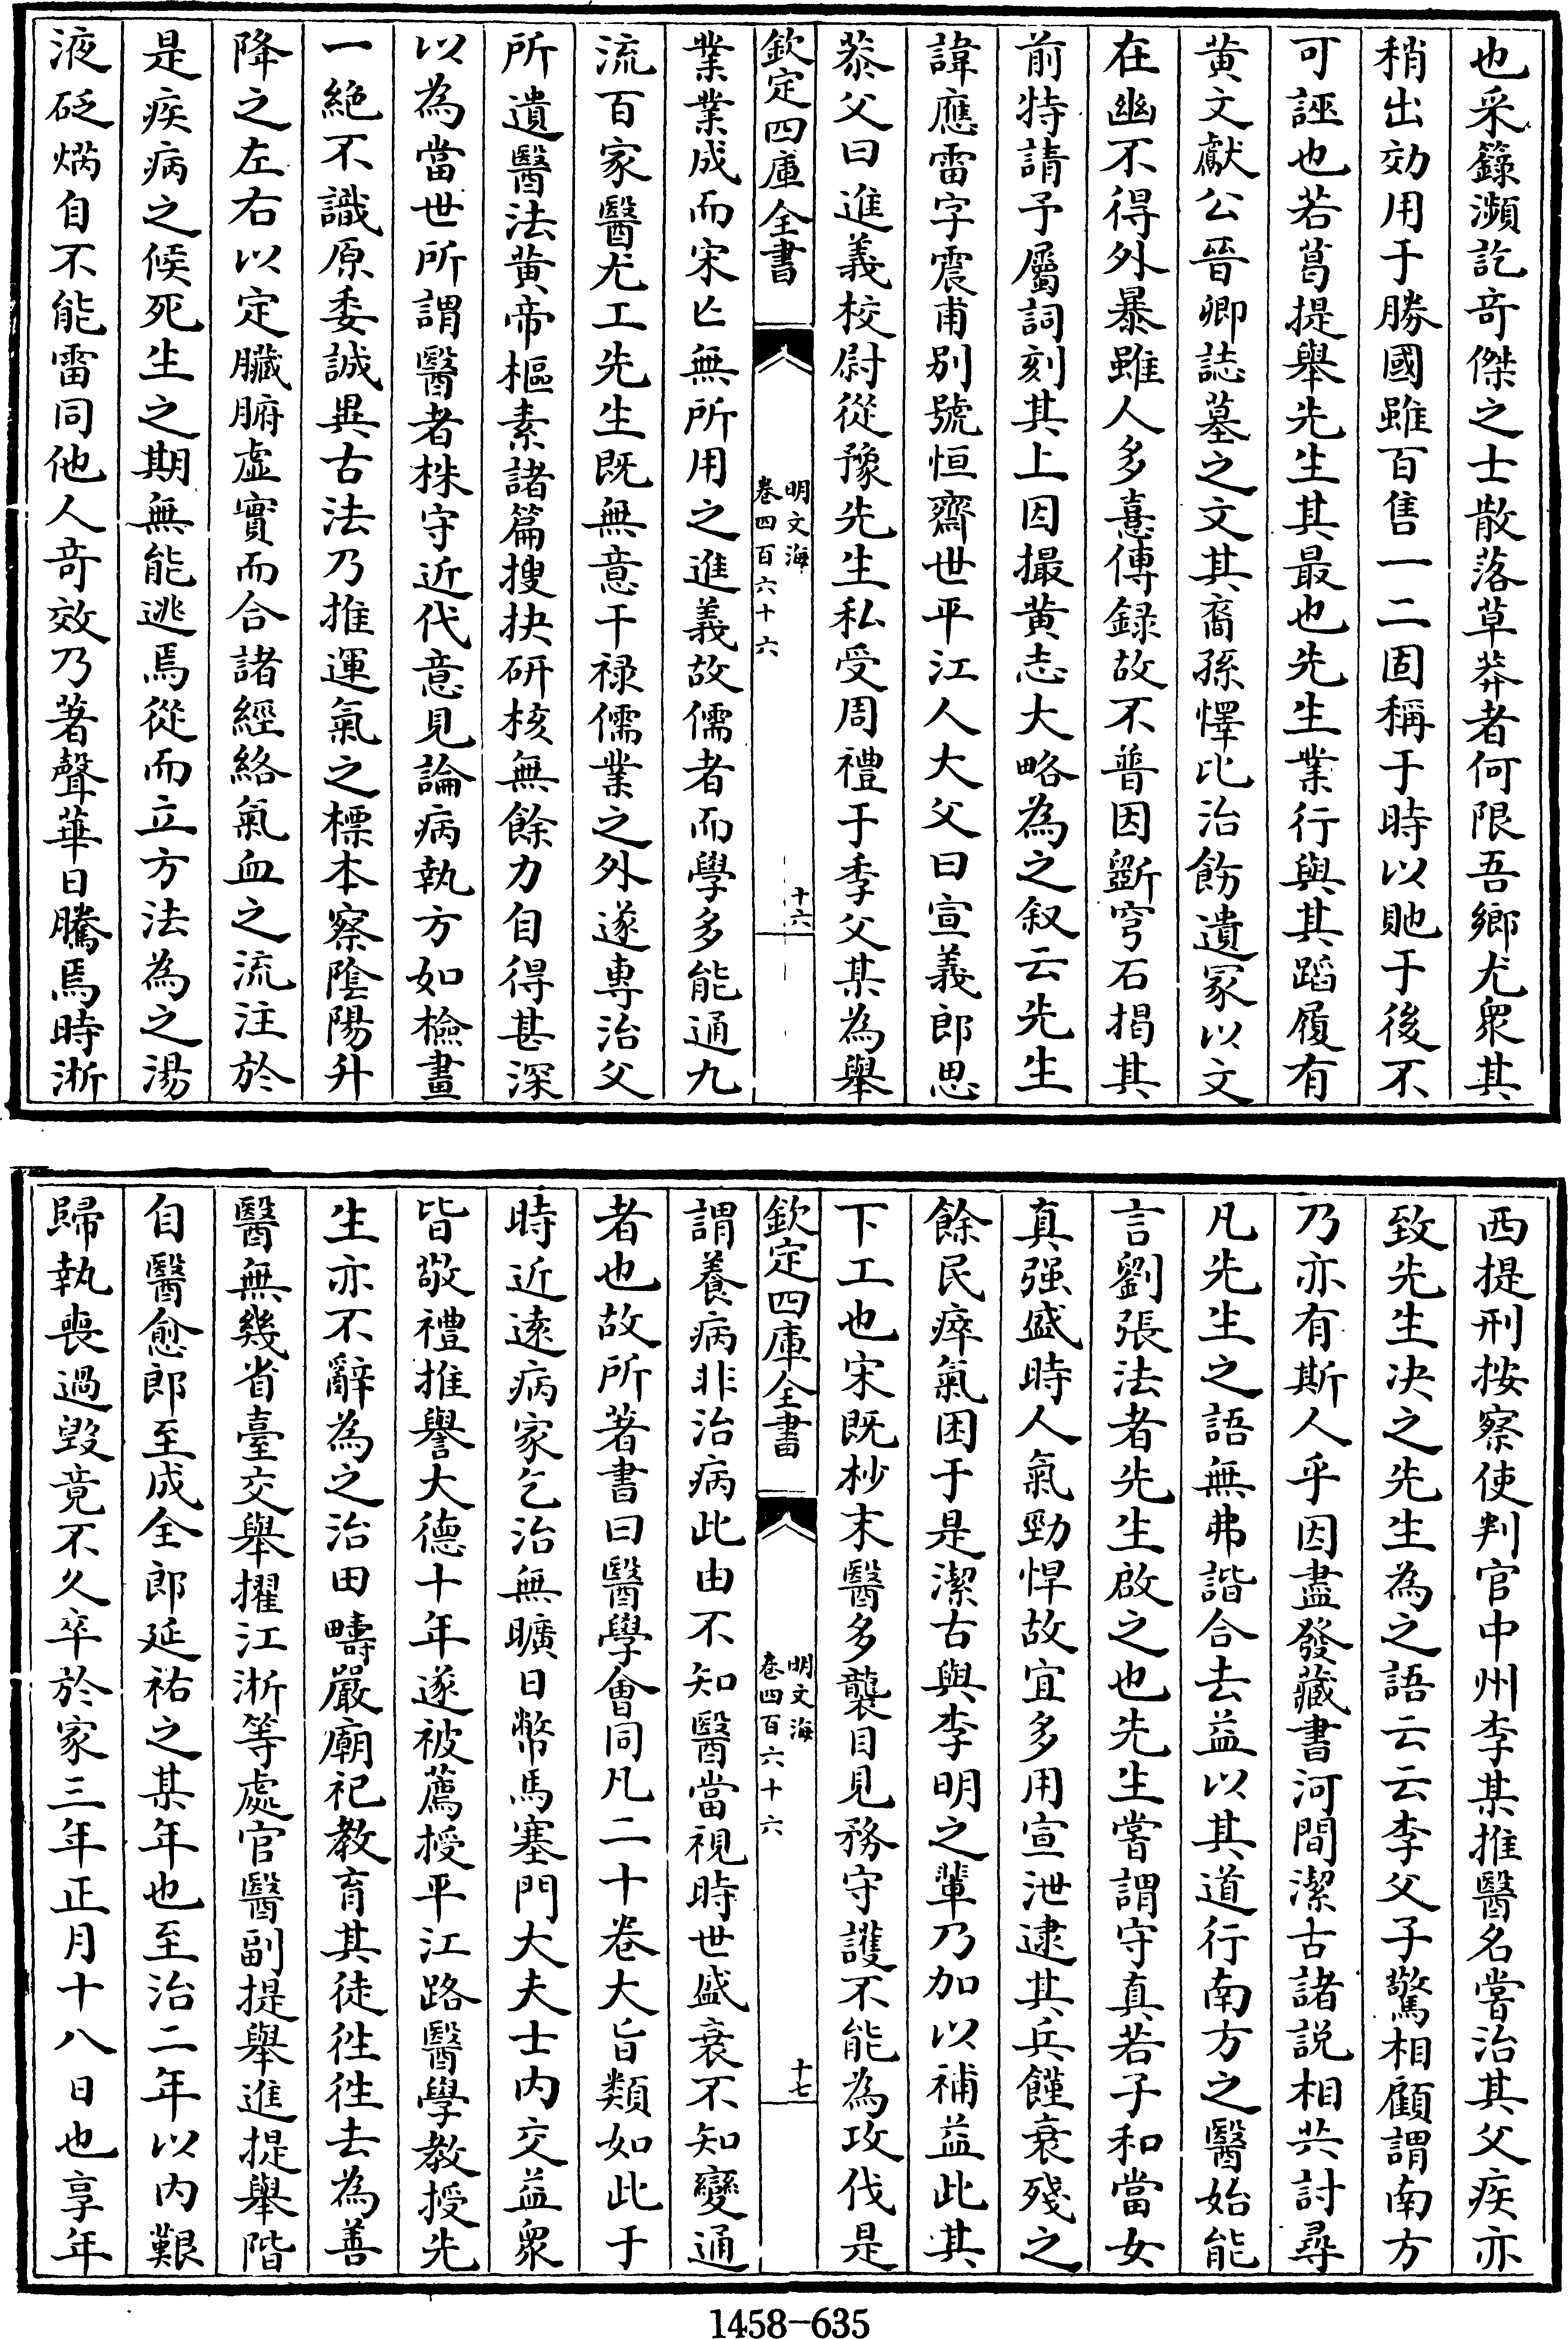 也采錄瀕訖竒傑之士散落草莽者何限吾鄉尤衆其
稍出効用于勝國雖百售一二固稱于時以貤于後不
可誣也若葛提舉先生其最也先生業行與其蹈履有
黄文獻公晉卿誌墓之文其裔孫懌比治飭遺冢以文
在幽不得外暴雖人多憙傳録故不普因斵穹石揭其
前特請予屬詞刻其上因撮黄志大略為之叙云先生
諱應雷字震甫别號恒齋世平江人大父曰宣義郎思
恭父曰進義校尉從豫先生私受周禮于季父某為舉
欽定四庫全書
明文海
卷四百六十六
十六
業業成而宋亡無所用之進義故儒者而學多能通九
流百家醫尤工先生既無意干禄儒業之外遂専治父
所遺醫法黄帝樞素諸篇搜抉研核無餘力自得甚深
以為當世所謂醫者株守近代意見論病執方如檢畫
一絶不識原委誠異古法乃推運氣之標本察陰陽升
降之左右以定臟腑虚實而合諸經絡氣血之流注於
是疾病之候死生之期無能逃焉從而立方法為之湯
液砭焫自不能雷同他人竒效乃著聲華日騰焉時淛
西提刑按察使判官中州李某推醫名嘗治其父疾亦
致先生决之先生為之語云云李父子驚相顧謂南方
乃亦有斯人乎因盡發藏書河間潔古諸説相共討尋
凡先生之語無弗諧合去益以其道行南方之醫始能
言劉張法者先生啟之也先生嘗謂守真若子和當女
真强盛時人氣勁悍故宜多用宣泄逮其兵饉衰殘之
餘民瘁氣困于是潔古與李明之輩乃加以補益此其
下工也宋既杪末醫多襲目見務守護不能為攻伐是
欽定四庫全書
明文海
卷四百六十六
十七
謂養病非治病此由不知醫當視時世盛衰不知變通
者也故所著書曰醫學㑹同凡二十卷大旨類如此于
時近逺病家乞治無曠日幣馬塞門大夫士内交益衆
皆敬禮推譽大德十年遂被薦授平江路醫學教授先
生亦不辭為之治田疇嚴廟祀教育其徒徃徃去為善
醫無幾省臺交舉擢江淛等處官醫副提舉進提舉階
自醫愈郎至成全郎延祐之某年也至治二年以内艱
歸執喪過毁竟不久卒於家三年正月十八日也享年
1458-635